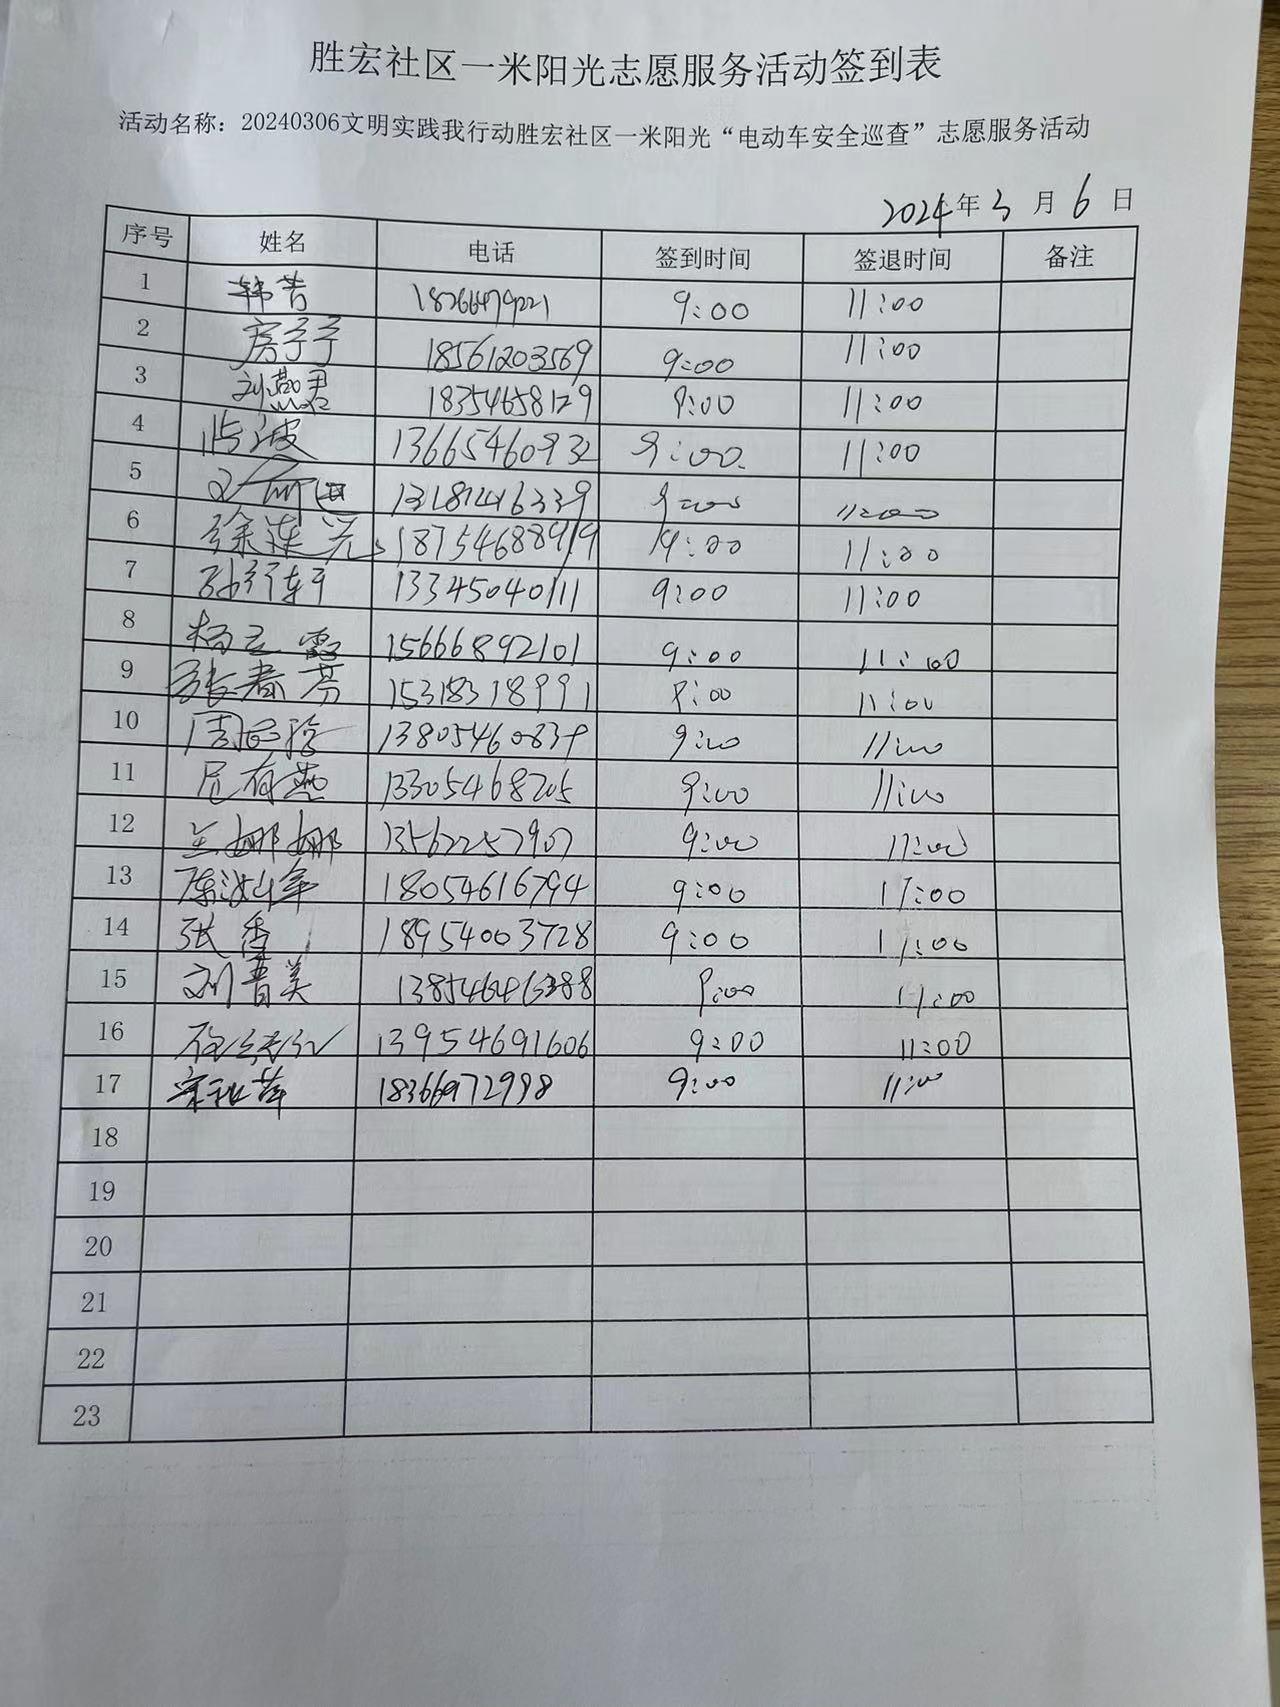 胜宏社区一米阳光志愿服务活动签到表
活动名称：20240306文明实践我行动胜宏社区一米阳光“电动车安全巡查”志愿服务活动
2024年3月6日
序号 姓名 电话 签到时间 签退时间 备注
1 韩菁 18266479221 9:00 11:00
2 房子予 18561203569 9:00 11:00
3 刘燕君 18354658129 9:00 11:00
4 13665460932 9:00 11:00
5 9:00 11:00
6 徐莲芝 18754688919 9:00 11:00
7 13345040111 9:00 11:00
8 杨立霞 15666892101 9:00 11:00
9 张春芳 15318318991 9:00 11:00
10 13805460839 9:00 11:00
11 尼有燕 13305468205 9:00 11:00
12 王娜娜 13562257907 9:00 11:00
13 18054616794 9:00 11:00
14 张香 18954003728 9:00 11:00
15 刘春美 9:00 11:00
16 13954691606 9:00 11:00
17 18366972998 9:00 11:00
18
19
20
21
22
23